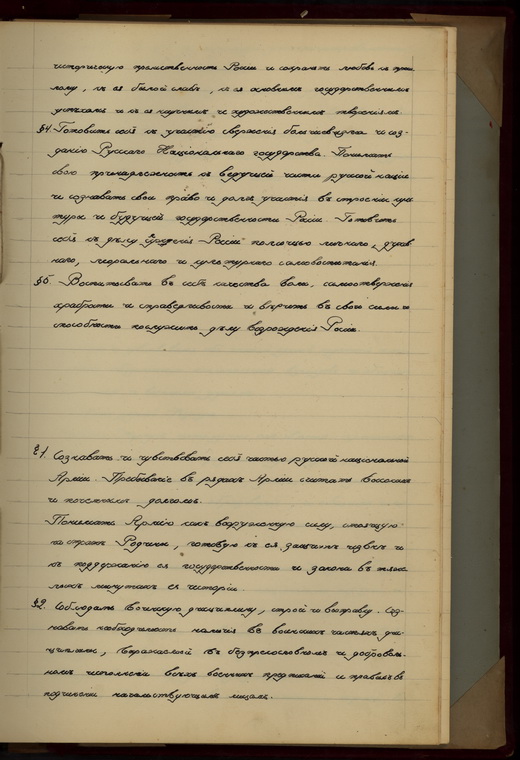 историческую преемственность Россіи и сохранять любовь къ
лому, къ ея былой славѣ, къ ея основнымъ государственнымъ
успѣхамъ и къ ея научнымъ и художественнымъ твореніямъ.
§4. Готовить себя къ участію сверженія большевизма и соз-
данію Русскаго Національнаго государства. Понимать
свою принадлежность къ ведущей части русской націи
и сознавать свои право и долгъ участія въ строеніи куль
туры и будущей государственности Россіи. Готовить
себя къ дѣлу Россіи помощью личнаго, духов
наго, моральнаго и культурнаго самовоспитанія.
§5. Воспитывать въ себѣ качества воли, самоотверженія
храбрости и справедливости и вѣрить въ свои силы и
способности послужить дѣлу возрожденія Россіи.
§1. Сознавать и чувствовать себя частью русской національной
Арміи. Пребываніе въ рядахъ Арміи считать высокимъ
и почетнымъ долгомъ.
Понимать Армію какъ вооруженную силу, стоящую
на стражѣ Родины, готовую къ ея защитѣ извнѣ и
къ поддержанію ея государственности и закона въ тяж
лыхъ минутахъ ея исторіи.
§2. Соблюдать воинскую дисциплину, строй и выправку. Соз
навать необходимость наличія въ воинскихъ частяхъ дис
циплины, выражаемой въ безпрекословномъ и доброволь
номъ исполненіи всѣхъ военныхъ и правилъ въ
подчиненіи начальствующимъ лицамъ.